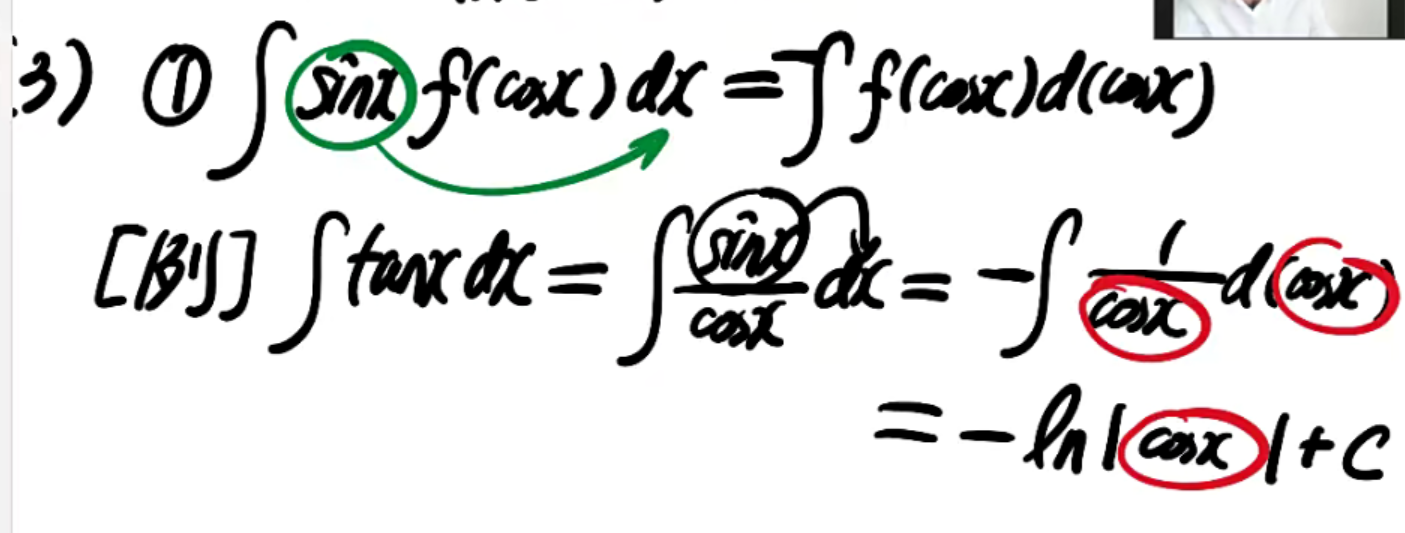 (3) ① ∫ sinx f(cosx) dx = -∫ f(cosx)d(cosx)
[例] ∫ tanx dx = ∫ sinx/cosx dx = -∫ 1/cosx d(cosx)
= -ln|cosx|+C